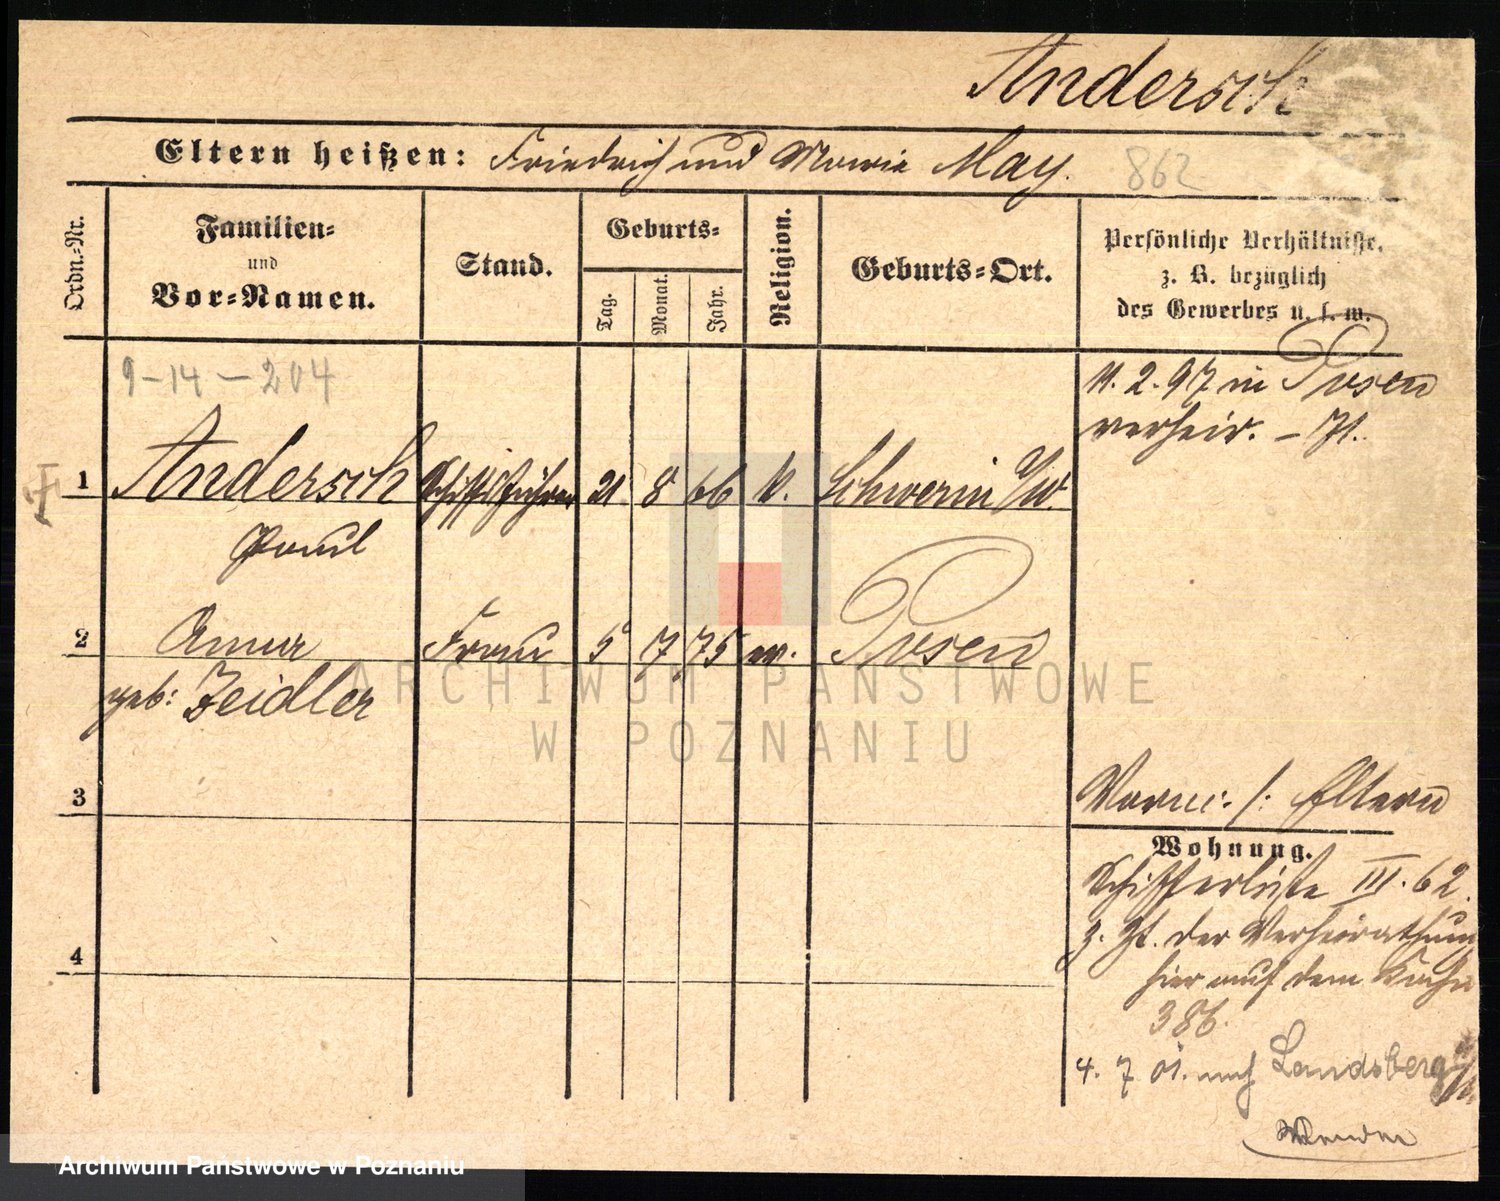 Andersch
Eltern heißen: Friedrich und Marie May.
862
Ordn.-Nr.
Familien-
und
Vor-Namen.
Stand.
Geburts-
Tag.
Monat.
Jahr.
Religion.
Geburts-Ort.
Persönliche Verhältnisse,
z. B. bezüglich
des Gewerbes u. s. w.
9-14-204
11. 2. 97 in Posen
verheir. - 71.
1 Andersch Schiffsführer 21 8 66 k. Schwerin a/W.
Paul
2 Anna Frau 5 7 75 ev. Posen
geb: Zeidler
3
Eltern
Wohnung.
Schifferliste III. 62.
z. Zt. der Verheirathung
hier auf dem Kahn
386.
4
4. 7. 01. nach Landsberg
ARCHIWUM PAŃSTWOWE
W POZNANIU
Archiwum Państwowe w Poznaniu